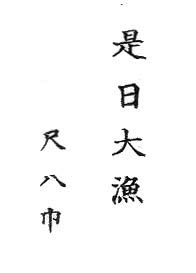 是日大漁
尺八巾